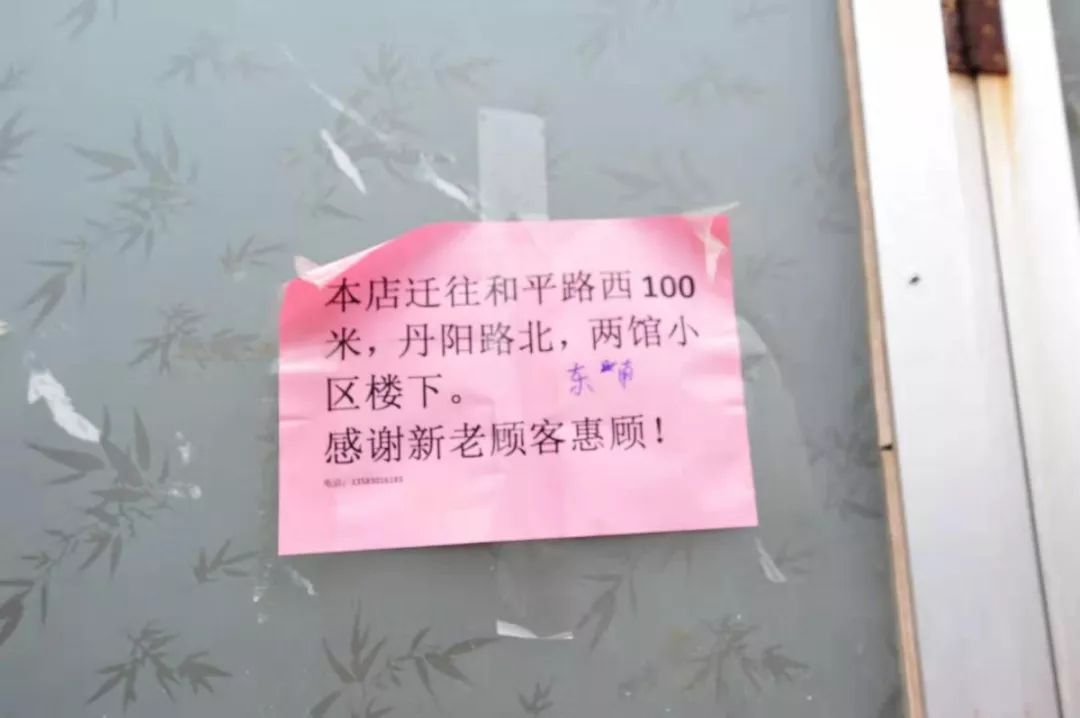 本店迁往和平路西100
米，丹阳路北，两馆小
区楼下。
东南
感谢新老顾客惠顾！
电话：